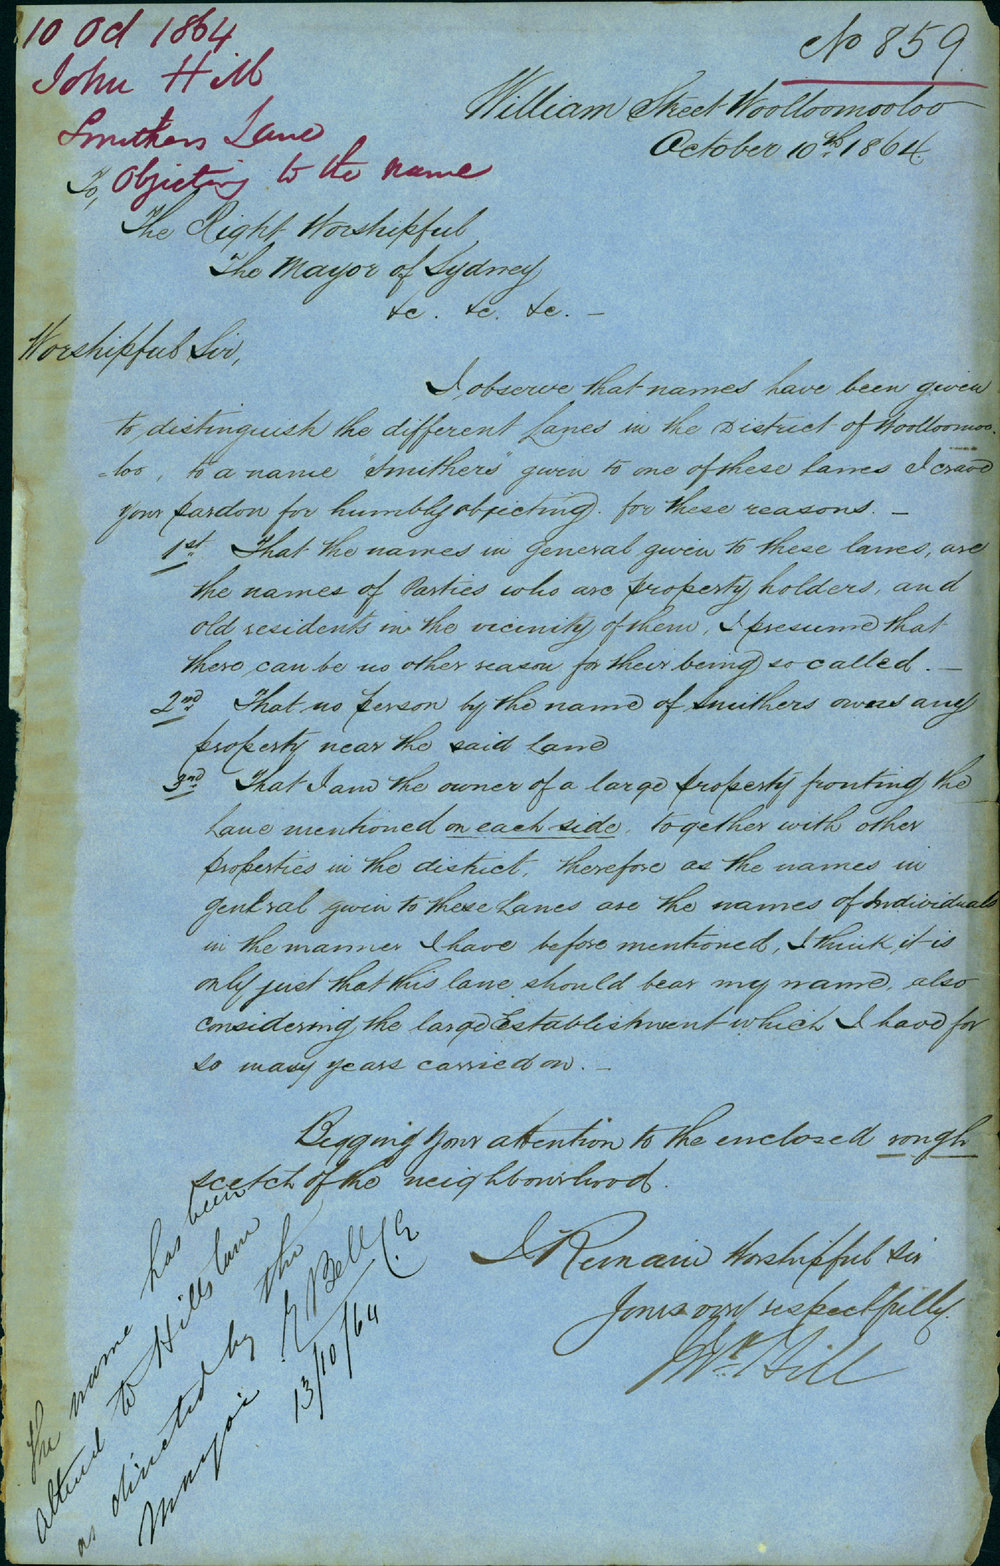 10 Oct 1864
John Hill
Smithers Lane
Objecting to the name
No 859
William Street Woolloomooloo
October 10th 1864
To,
The Right Worshipful
The Mayor of Sydney
&c. &c. &c. –
Worshipful Sir,
I observe that names have been given
to distinguish the different Lanes in the District of Woolloomoo-
-loo, to a name "Smithers" given to one of these lanes I crave
your pardon for humbly objecting. for these reasons. –
1st That the names in general given to these lanes, are
the names of Parties who are property holders, and
old residents in the vicinity of them, I presume that
there can be no other reason for their being so called. –
2nd That no person by the name of Smithers owns any
property near the said Lane
3rd That I am the owner of a large property fronting the
Lane mentioned on each side, together with other
properties in the district, therefore as the names in
general given to these Lanes are the names of Individuals
in the manner I have before mentioned, I think it is
only just that this lane should bear my name, also
considering the large Establishment which I have for
so many years carried on. –
Begging your attention to the enclosed rough
scetch of the neighbourhood.
I Remain Worshipful Sir
Yours very respectfully
Wm Hill
The name has been
altered to Hills lane
as directed by the
Mayor E Bell C.E
13/10/64